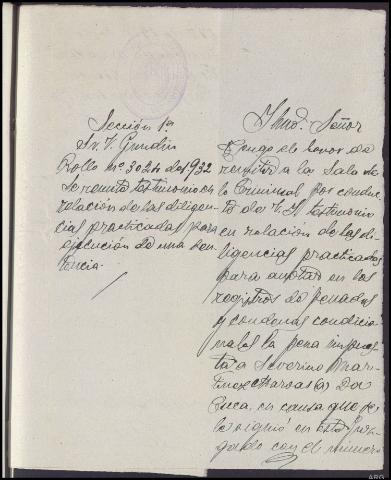 Sección 1ª
Sr. V. Gundín
Rollo nº 3024 de 1932
Se remite testimonio en
relación de las diligen-
cias practicadas para
ejecución de una sen-
tencia.
Ilmo. Señor
Tengo el honor de
remitir a la Sala de
lo Criminal por conduc-
to de V.I. testimonio
en relación de las di-
ligencias practicadas
para anotar en los
registros de penados
y condenas condicio-
nales la pena impues-
ta a Severino Mar-
tinez
Cuca, en causa que se
le siguió en este Juz-
gado con el número
ARG